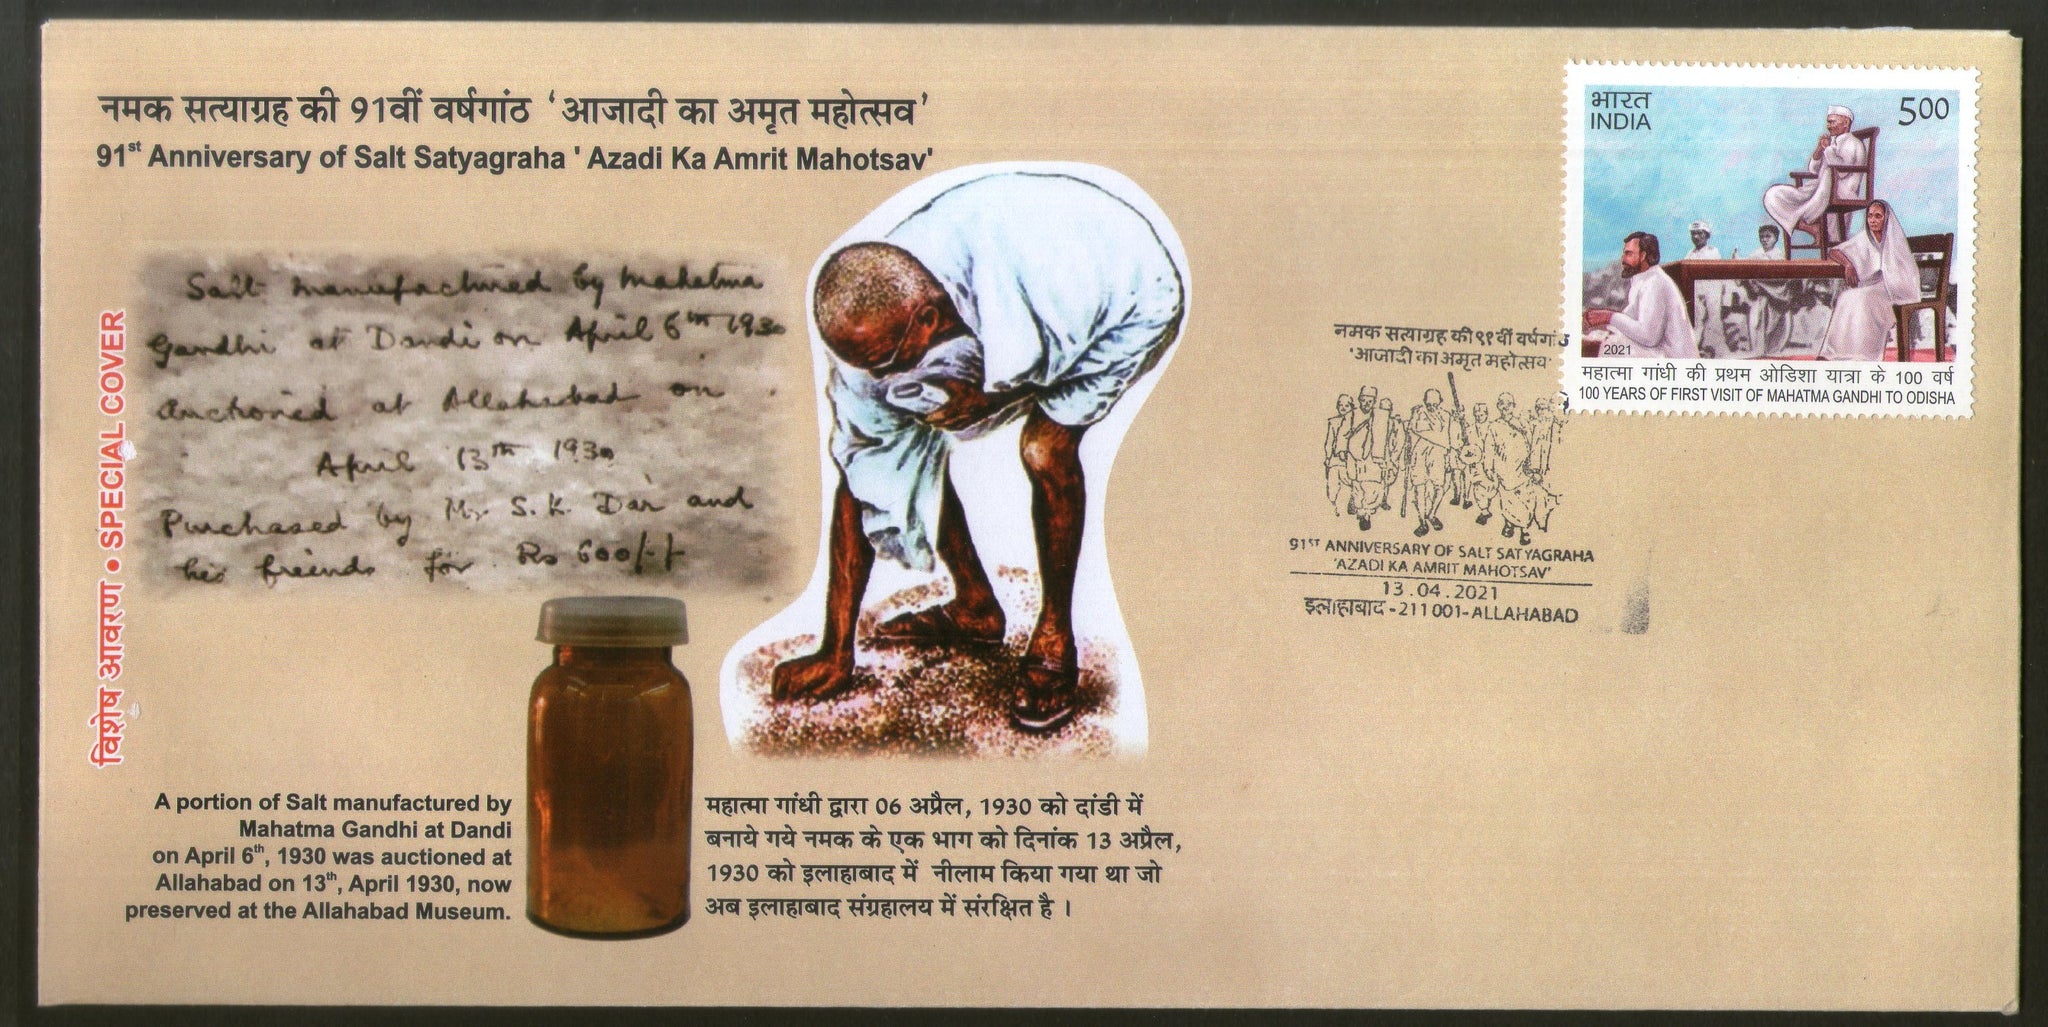 नमक सत्याग्रह की 91वीं वर्षगांठ ‘आजादी का अमृत महोत्सव’
91st Anniversary of Salt Satyagraha ' Azadi Ka Amrit Mahotsav'
विशेष आवरण • SPECIAL COVER
Salt manufactured by Mahatma
Gandhi at Dandi on April 6th 1930
Auctioned at Allahabad on
April 13th 1930
Purchased by Mr S. K. Dar and
his friends for Rs 600/-/-
A portion of Salt manufactured by
Mahatma Gandhi at Dandi
on April 6th, 1930 was auctioned at
Allahabad on 13th, April 1930, now
preserved at the Allahabad Museum.
महात्मा गांधी द्वारा 06 अप्रैल, 1930 को दांडी में
बनाये गये नमक के एक भाग को दिनांक 13 अप्रैल,
1930 को इलाहाबाद में नीलाम किया गया था जो
अब इलाहाबाद संग्रहालय में संरक्षित है ।
भारत
INDIA
500
2021
महात्मा गांधी की प्रथम ओडिशा यात्रा के 100 वर्ष
100 YEARS OF FIRST VISIT OF MAHATMA GANDHI TO ODISHA
नमक सत्याग्रह की ९१वीं वर्षगांठ
'आजादी का अमृत महोत्सव'
91ST ANNIVERSARY OF SALT SATYAGRAHA
'AZADI KA AMRIT MAHOTSAV'
13.04.2021
इलाहाबाद - 211001-ALLAHABAD